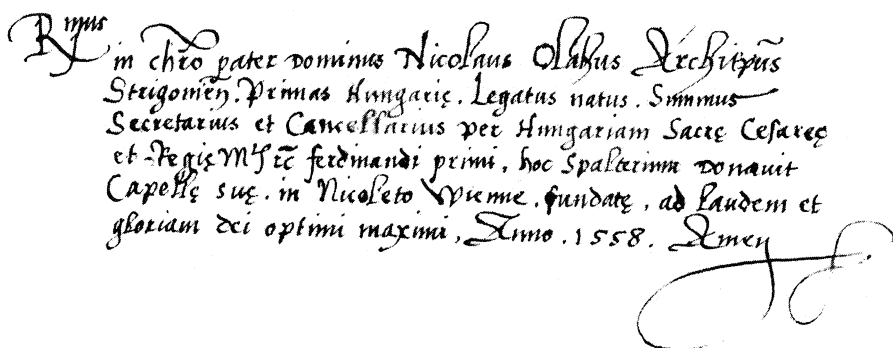 Rmus
in chro pater Dominus Nicolaus Olahus Archiepus
Strigonien. Primas Hungarię. Legatus natus. Summus
Secretarius et Cancellarius per Hungariam Sacrę Cesareę
et Regię Mtis etc ferdinandi primi, hoc Psalterium Donavit
Capellę suę. in Nicoleto Vienne. fundatę, ad laudem et
gloriam dei optimi maximi, Anno. 1558. Amen